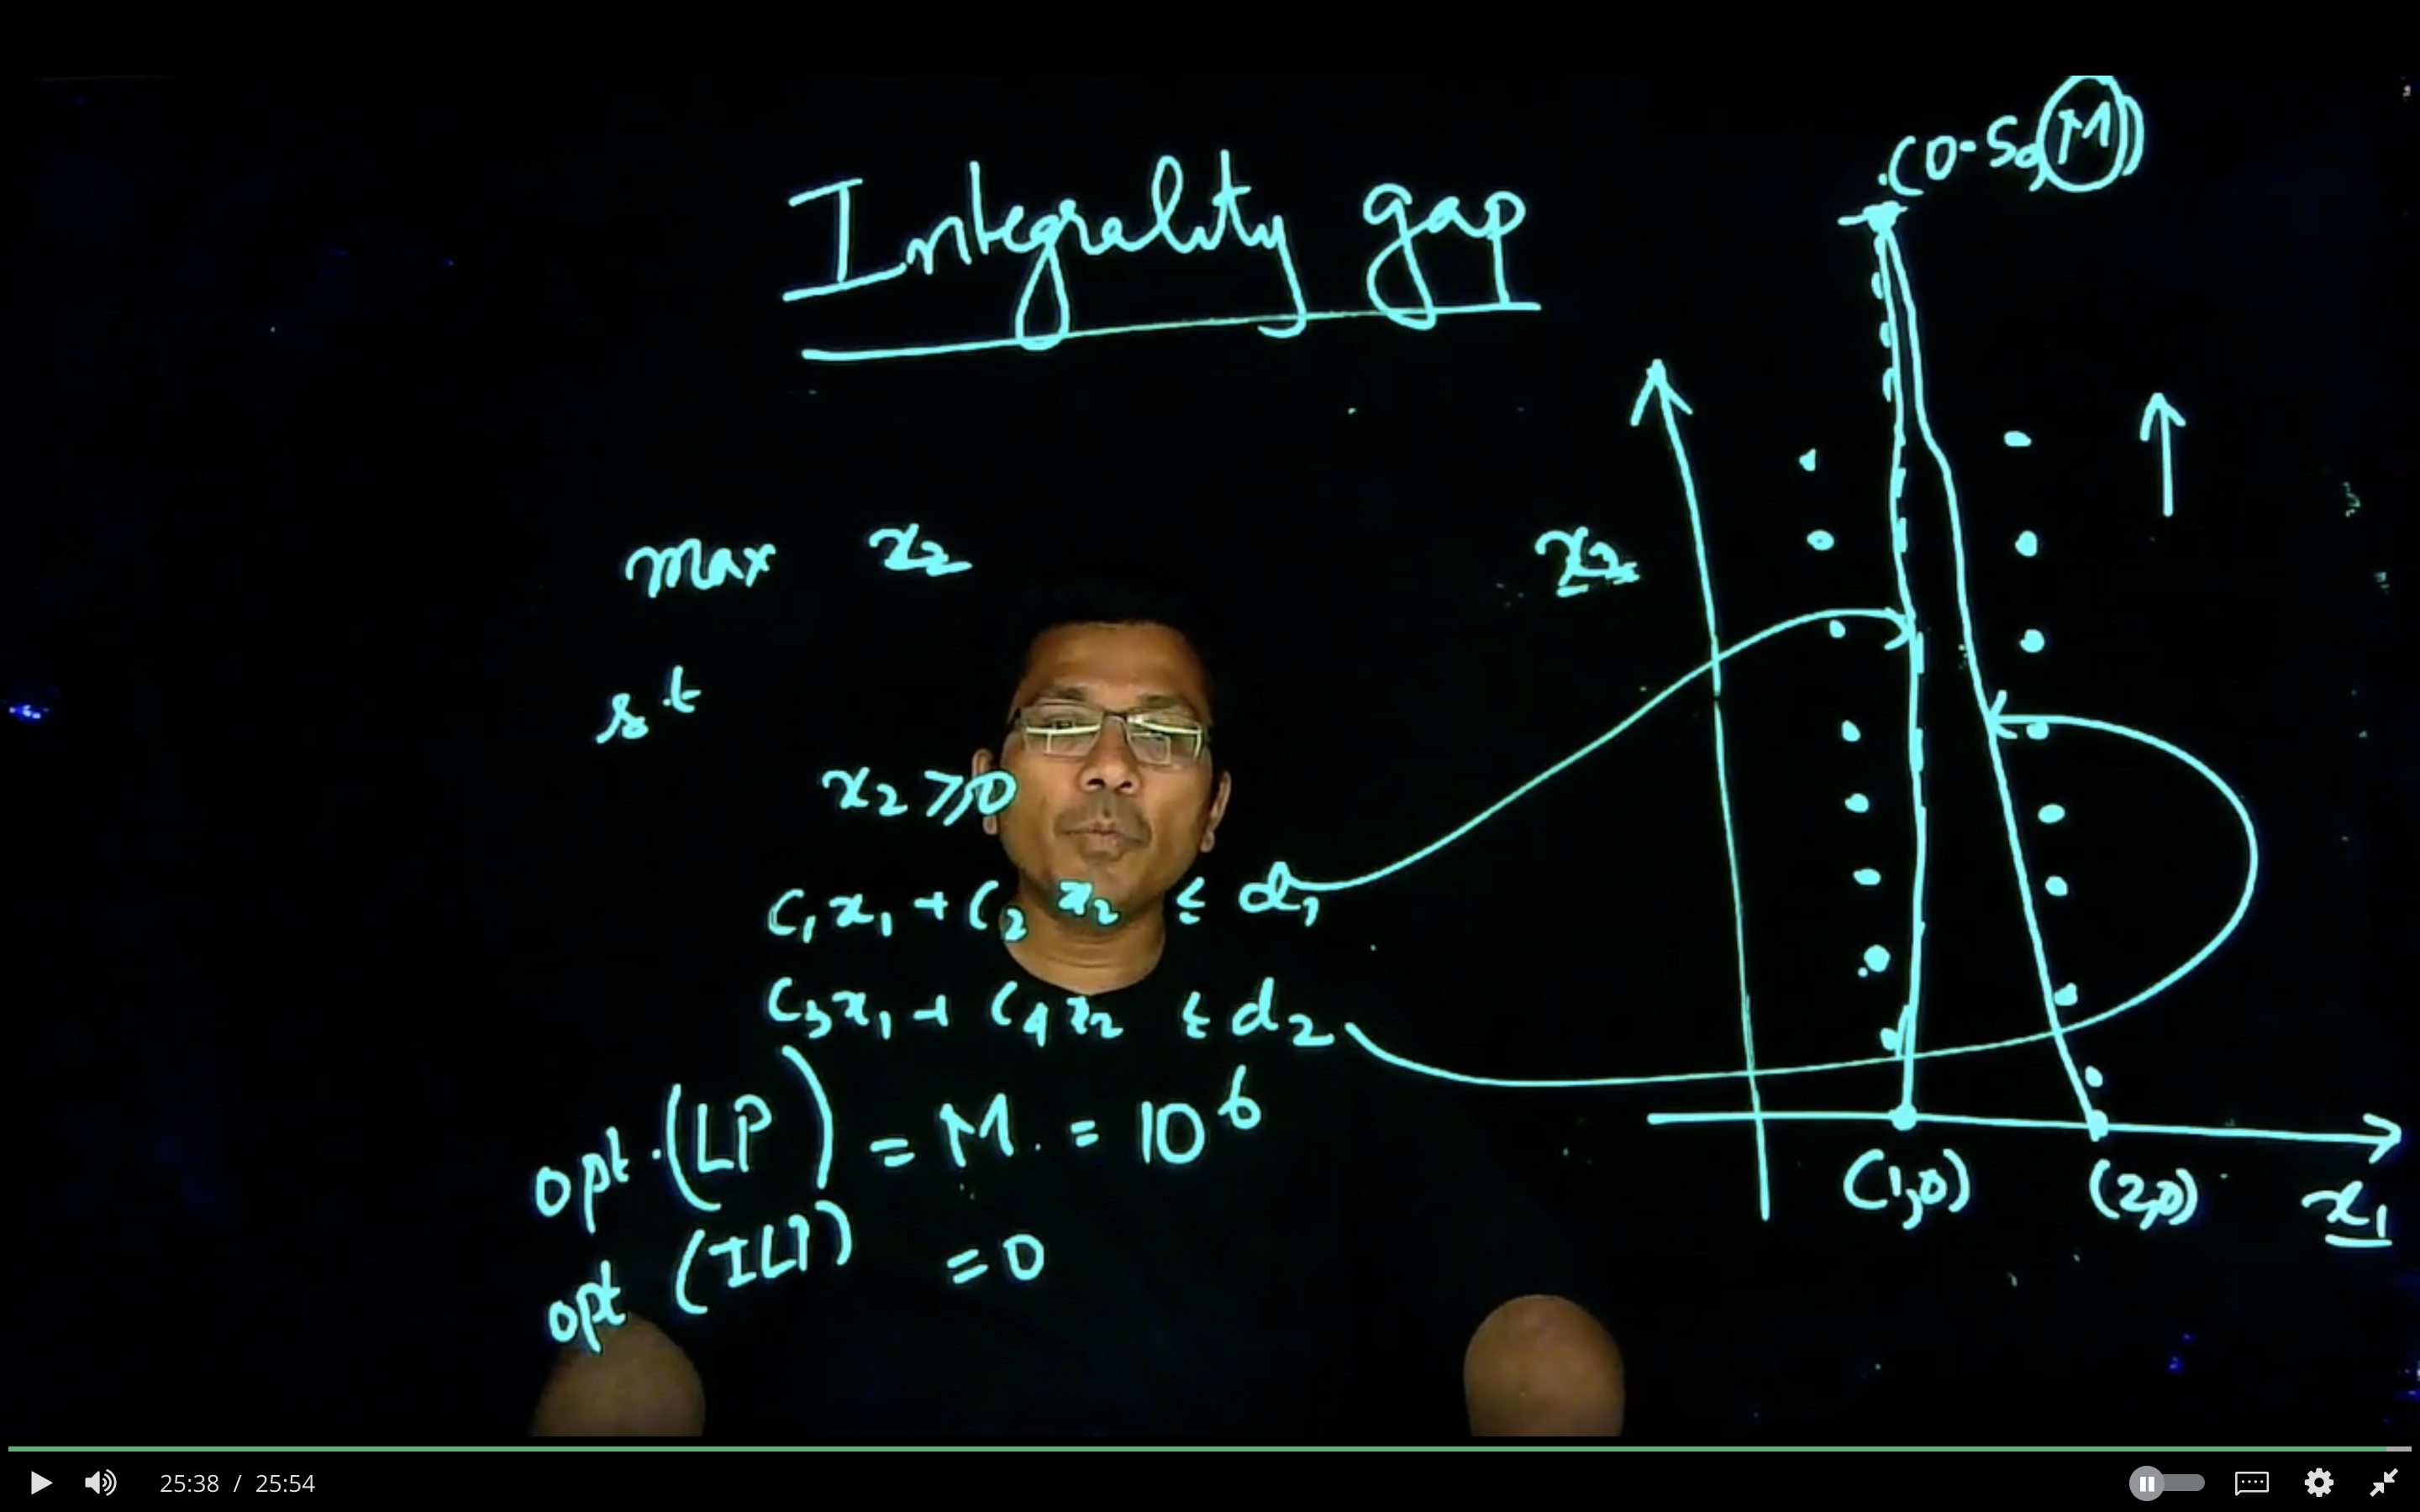 Integrality gap
(0.5,(M))
max x₂
s.t
x₂ ≥ 0
c₁x₁ + c₂x₂ ≤ d₁
c₃x₁ + c₄x₂ ≤ d₂
opt.(LP) = M. = 10⁶
opt (ILP) = 0
x₂
(1,0)
(2,0)
x₁
25:38 / 25:54